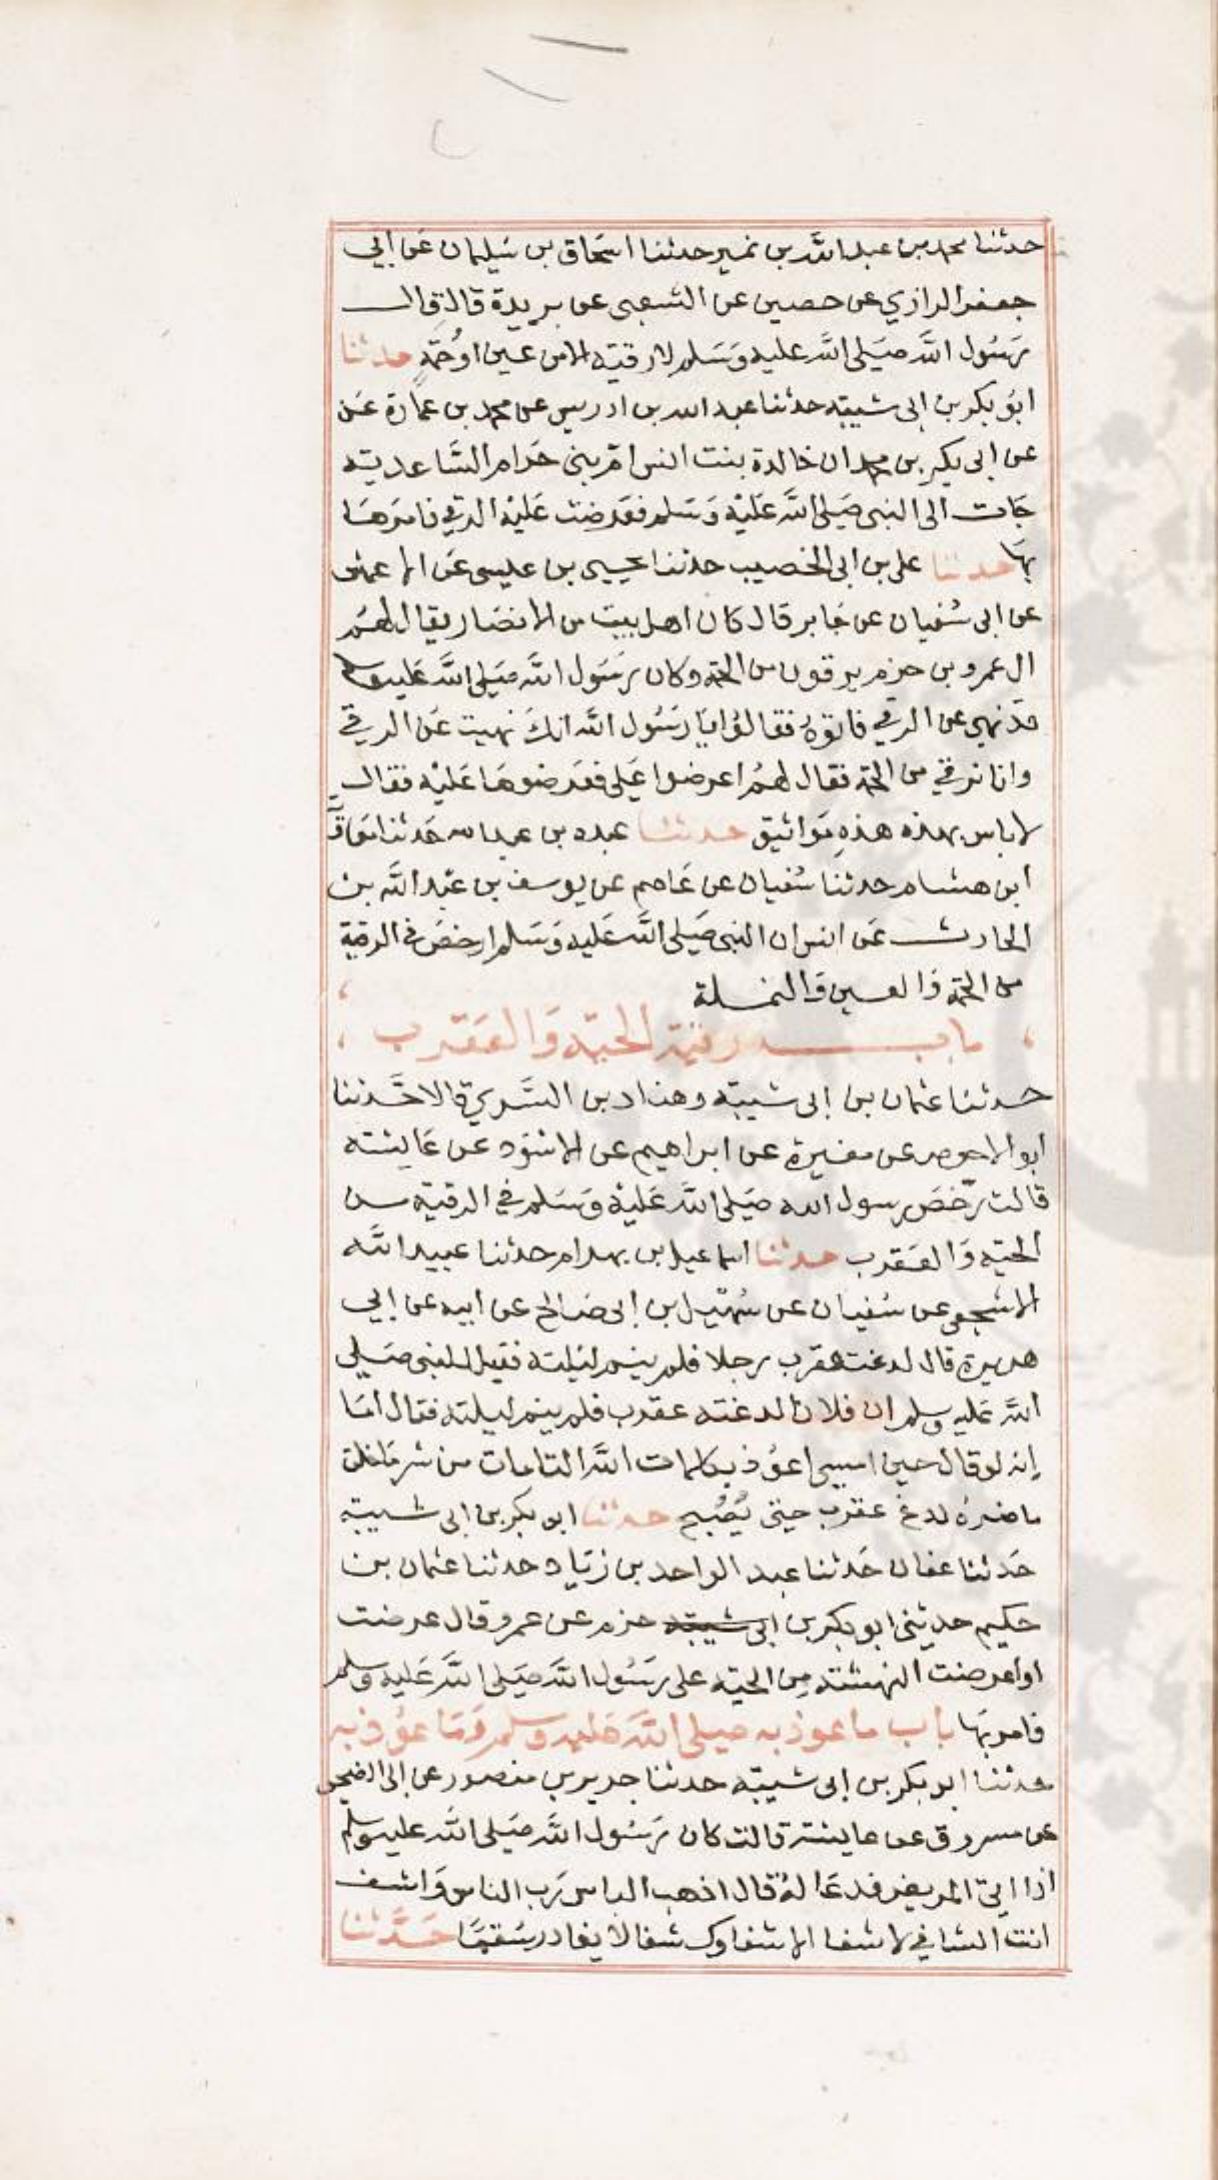 حدثنا محمد بن عبد الله بن نمير حدثنا اسحاق بن سليمان عن ابي
جعفر الرازي عن حصين عن الشعبي عن بريدة قال قال
رسول الله صلى الله عليه وسلم لا رقية الا من عين او حمة حدثنا
ابو بكر بن ابى شيبة حدثنا عبد الله بن ادريس عن محمد بن عمارة عن
عن ابى بكر بن محمد ان خالدة بنت انس ام بني حزام الساعدية
جات الى النبي صلى الله عليه وسلم فعرضت عليه الرقي فامرها
بها حدثنا على بن ابى الخصيب حدثنا يحيى بن عيسى عن الاعمش
عن ابى سفيان عن جابر قال كان اهل بيت من الانصار يقال لهم
ال عمرو بن حزم يرقون من الحمة وكان رسول الله صلى الله عليه وسلم
قد نهى عن الرقي فاتوه فقالوا يا رسول الله انك نهيت عن الرقي
وانا نرقي من الحمة فقال لهم اعرضوا علي فعرضوها عليه فقال
لا باس بهذه هذه مواثيق حدثنا عبده بن عبد الله حدثنا معاوية
ابن هشام حدثنا سفيان عن عاصم عن يوسف بن عبد الله بن
الحارث عن انس ان النبي صلى الله عليه وسلم ارخص في الرقية
من الحمة والعين والنملة
باب رقية الحية والعقرب
حدثنا عثمان بن ابى شيبة وهناد بن السري قالا حدثنا
ابو الاحوص عن مغيرة عن ابراهيم عن الاسود عن عايشة
قالت رخص رسول الله صلى الله عليه وسلم في الرقية من
الحية والعقرب حدثنا اسماعيل بن بهرام حدثنا عبيد الله
الاشجعي عن سفيان عن سهيل بن ابى صالح عن ابيه عن ابي
هريرة قال لدغت عقرب رجلا فلم ينم ليلته فقيل للنبي صلى
الله عليه وسلم ان فلانا لدغته عقرب فلم ينم ليلته فقال اما
انه لو قال حين امسى اعوذ بكلمات الله التامات من شر ما خلق
ما ضره لدغ عقرب حتى يصبح حدثنا ابو بكر بن ابى شيبة
حدثنا عفان حدثنا عبد الواحد بن زياد حدثنا عثمان بن
حكيم حدثنى ابو بكر بن ابى شيبة حزم عن عمرو قال عرضت
او اعرضت النهشة من الحية على رسول الله صلى الله عليه وسلم
فامر بها باب ما عوذ به صلى الله عليه وسلم وما عوذ به
حدثنا ابو بكر بن ابى شيبة حدثنا جرير بن منصور عن ابى الضحى
عن مسروق عن عايشة قالت كان رسول الله صلى الله عليه وسلم
اذا اتى المريض فدعا له قال اذهب الباس رب الناس واشف
انت الشافي لا شفا الا شفاوك شفا لا يغادر سقما حدثنا